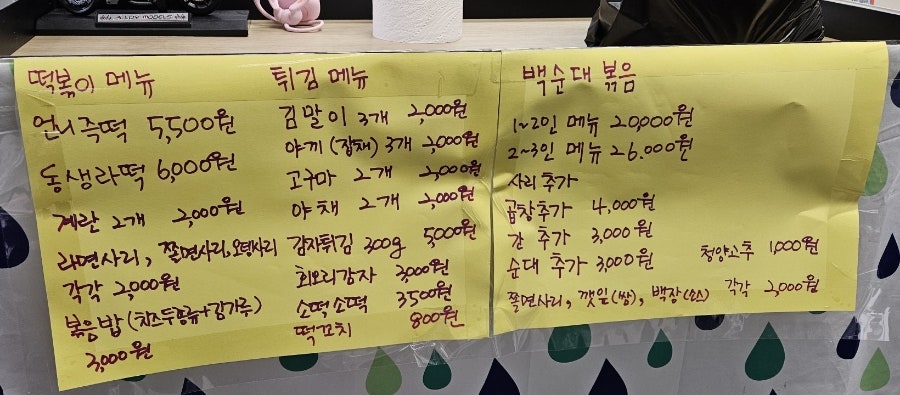 A LOW MODELS
떡볶이 메뉴
언니즉떡 5,500원
동생라떡 6,000원
계란 2개 2,000원
라면사리, 쫄면사리, 오뎅사리
각각 2,000원
볶음밥 (치즈두종류+김가루)
3,000원
튀김 메뉴
김말이 3개 2,000원
야끼 (잡채) 3개 2,000원
고구마 2개 2,000원
야채 2개 2,000원
감자튀김 300g 5000원
회오리감자 3,000원
소떡소떡 3500원
떡꼬치 800원
백순대 볶음
1~2인 메뉴 20,000원
2~3인 메뉴 26.000원
사리추가
곱창추가 4,000원
간 추가 3,000원
순대 추가 3,000원 청양고추 1,000원
쫄면사리, 깻잎(쌈), 백장(소스) 각각 2,000원